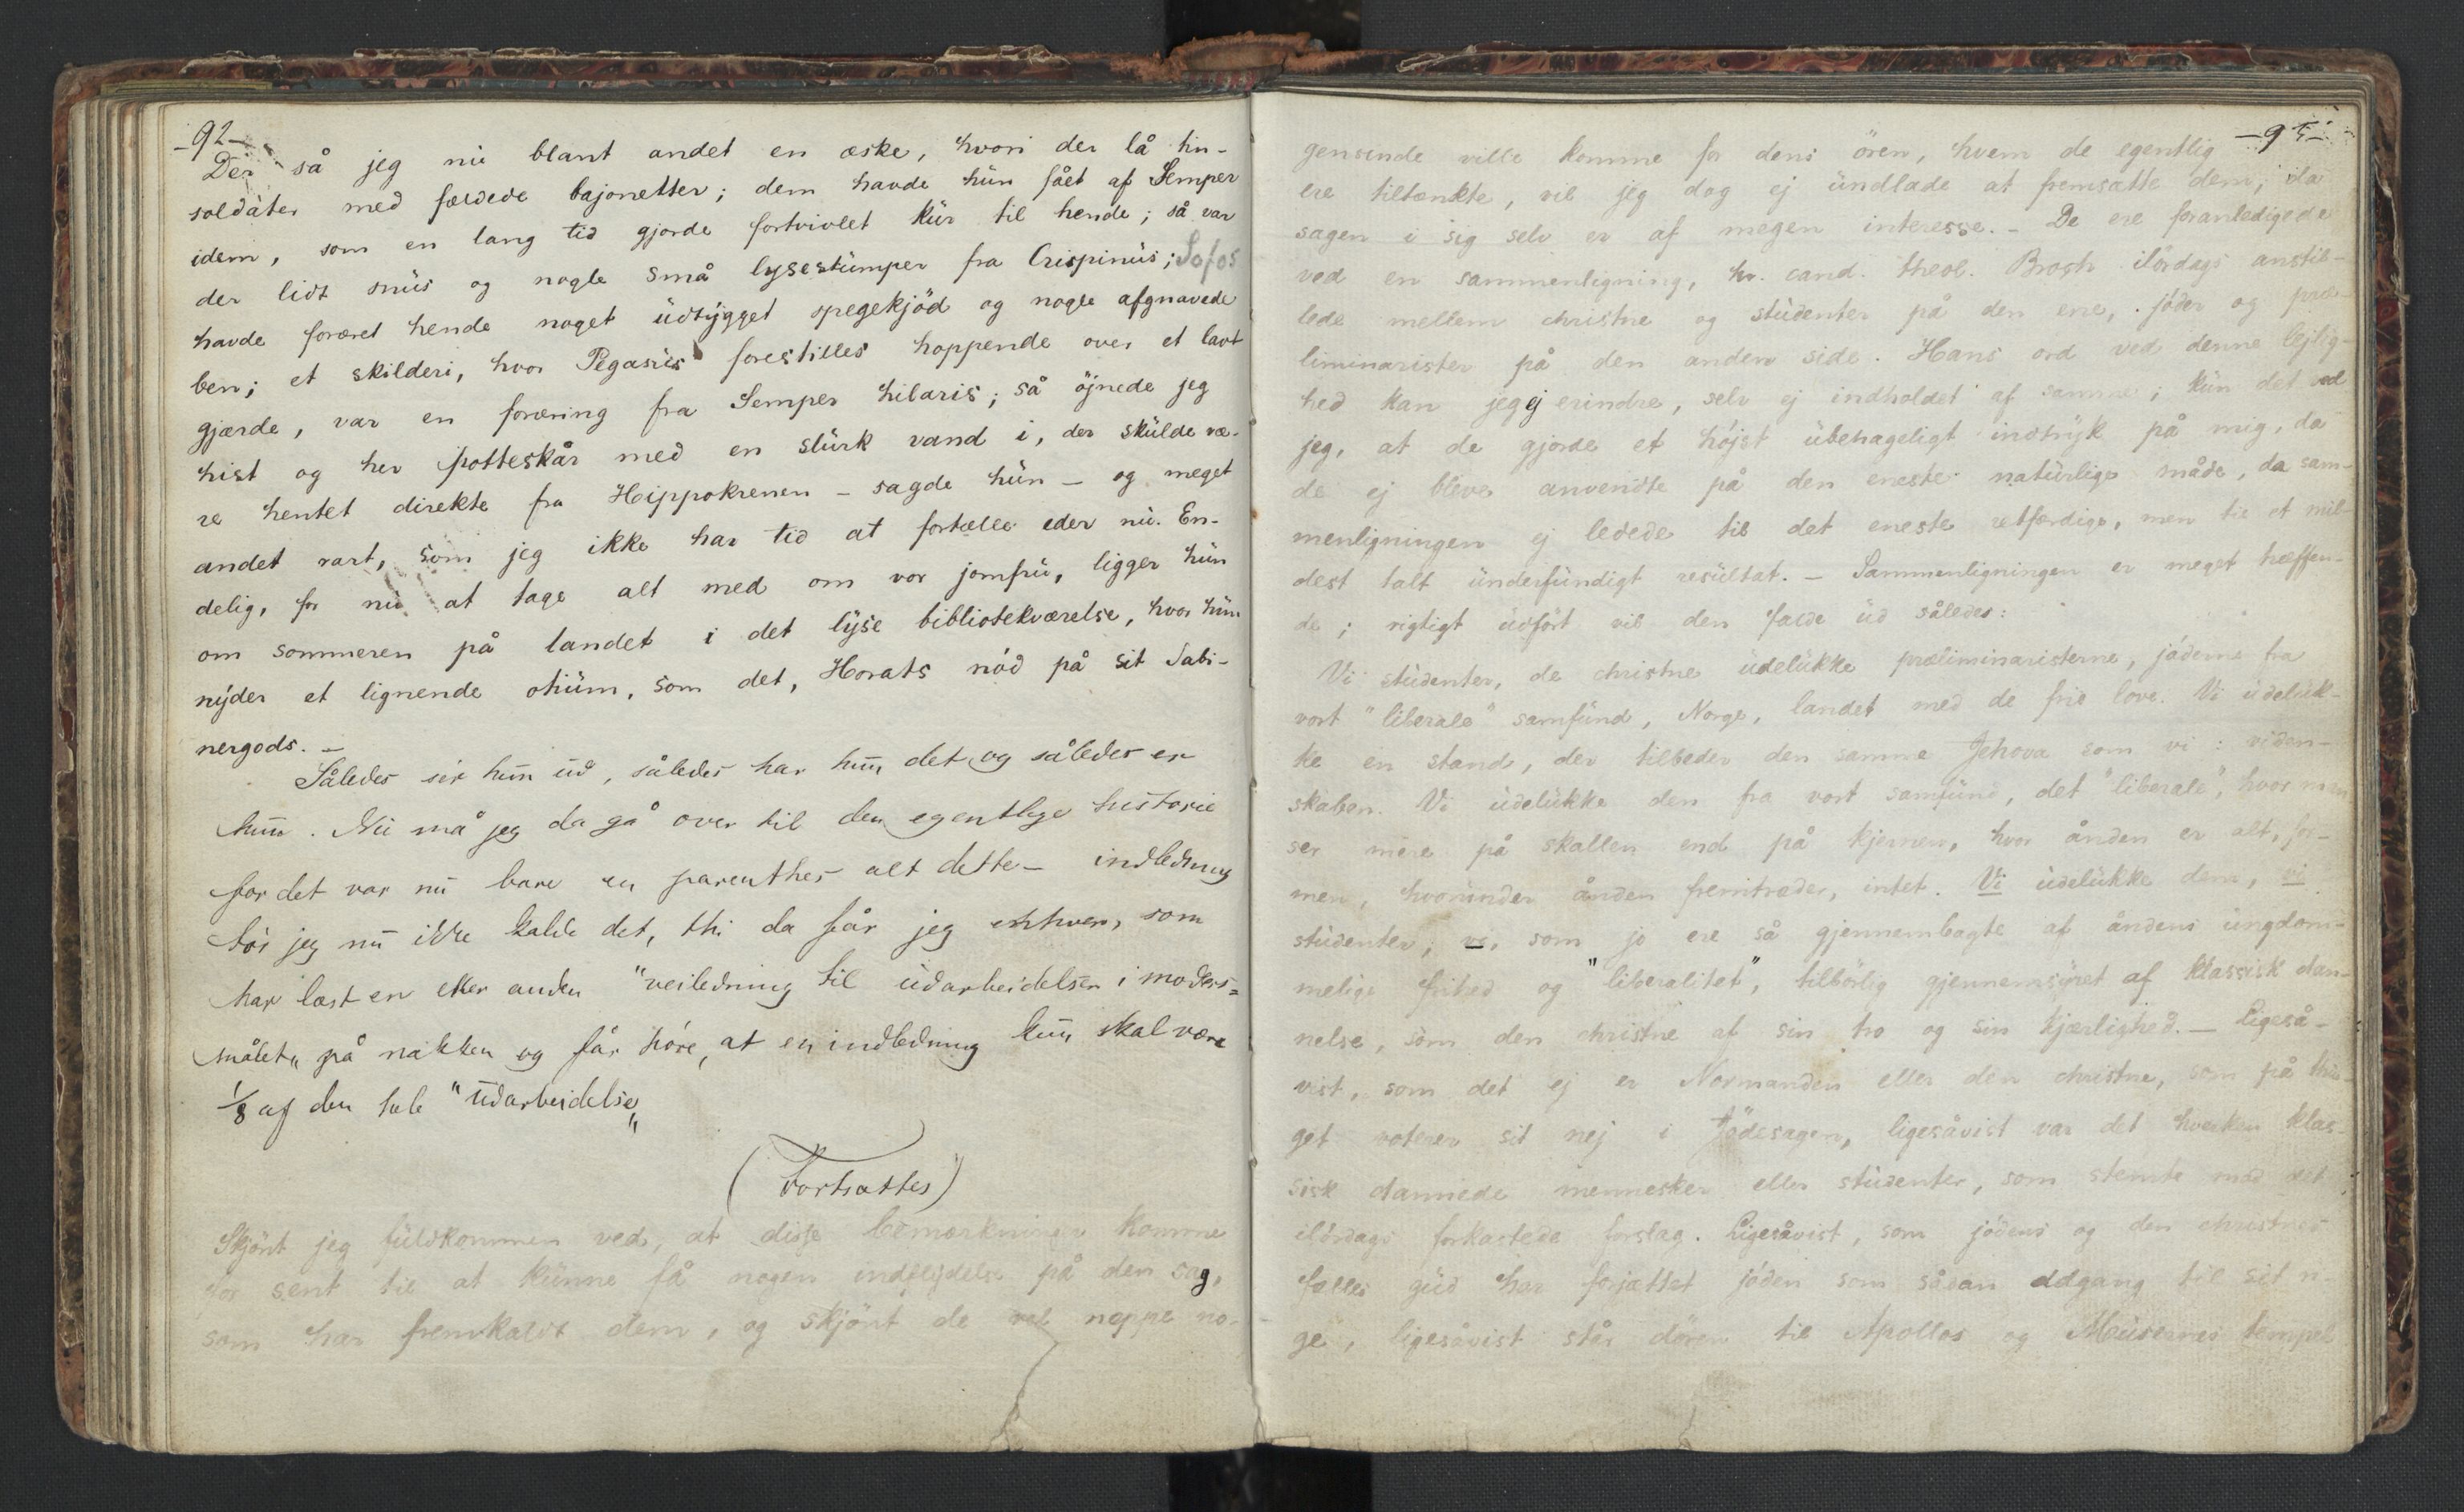 -92-
Der så jeg nu blant andet en æske, hvori der lå tin-
soldater med fældede bajonetter; dem havde hün fået af Semper
idem, som en lang tid gjorde fortvivlet kür til hende; så var
der lidt snüs og nogle små lysestümper fra Crispinüs; Sofos
havde foræret hende noget üdtygget spegekjöd og nogle afgnavede
ben; et skilderi, hvor Pegasüs forestilles hoppende over et lavt
gjærde, var en foræring fra Semper hilaris; så öjnede jeg
hist og her potteskår med en slürk vand i, der skülde væ-
re hentet direkte fra Hippokrenen - sagde hün - og meget
andet rart, som jeg ikke har tid at fortælle eder nü. En-
delig, for nü at tage alt med om vor jomfrü, ligger hün
om sommeren på landet i det lyse bibliotekværelse, hvor hün
nyder et lignende otiüm, som det, Horats nöd på sit Sabi-
nergods. -
Således sér hün üd, således har hün det og således er
hün. Nü må jeg da gå over til den egentlige historie
for det var nü bare en parenthes alt dette - indledning
tör jeg nü ikke kalde det, thi da får jeg enhver, som
har læst en eller anden "veiledning til üdarbeidelser i moders=
målet" på nakken og får höre, at en indledning kün skal være
1/8 af den hele "üdarbeidelse"
(Fortsættes)
Skjönt jeg füldkommen ved, at disse bemærkninger komme
for sent til at künne få nogen indflydelse på den sag,
som har fremkaldt dem, og skjönt de vel neppe no-
-95-
gensinde ville komme for dens ören, hvem de egentlig
ere tiltænkte, vil jeg dog ej ündlade at fremsætte dem, da
sagen i sig selv er af megen interesse. - De ere foranledigede
ved en sammenligning, hr. cand. theol. Broch ilördags anstil-
lede mellem christne og stüdenter på den ene, jöder og præ-
liminarister på den anden side. Hans ord ved denne lejlig-
hed kan jeg ej erindre, selv ej indholdet af samme; kün det ved
jeg, at de gjorde et höjst übehageligt indtryk på mig, da
de ej bleve anvendte på den eneste natürlige måde, da sam-
menligningen ej ledede til det eneste retfærdige, men til et mil-
dest talt ünderfündigt resültat. - Sammenligningen er meget træffen-
de; rigtigt üdfört vil den falde üd således:
Vi stüdenter, de christne üdelükke præliminaristerne, jöderne fra
vort "liberale" samfünd, Norge, landet med de frie love. Vi üdelük-
ke en stand, der tilbeder den samme Jehova som vi: viden-
skaben. Vi üdelükke den fra vort samfünd, det "liberale", hvor man
ser mere på skallen end på kjernen, hvor ånden er alt, for-
men, hvoründer ånden fremtræder, intet. Vi üdelükke dem, vi
stüdenter; vi, som jo ere så gjennembagte af åndens üngdom-
melige frihed og "liberalitet", tilbörlig gjennemsyret af klassisk dan-
nelse, som den christne af sin tro og sin kjærlighed. - Ligeså-
vist, som det ej er Normanden eller den christne, som på thin-
get voterer sit nej i Jödesagen, ligesåvist var det hverken klas-
sisk dannede mennesker eller stüdenter, som stemte mod det
ilördags forkastede forslag. Ligesåvist, som jödens og den christnes
fælles güd har forjættet jöden som sådan adgang til sit ri
ge, ligesåvist står dören til Apollos og Müsernes tempel